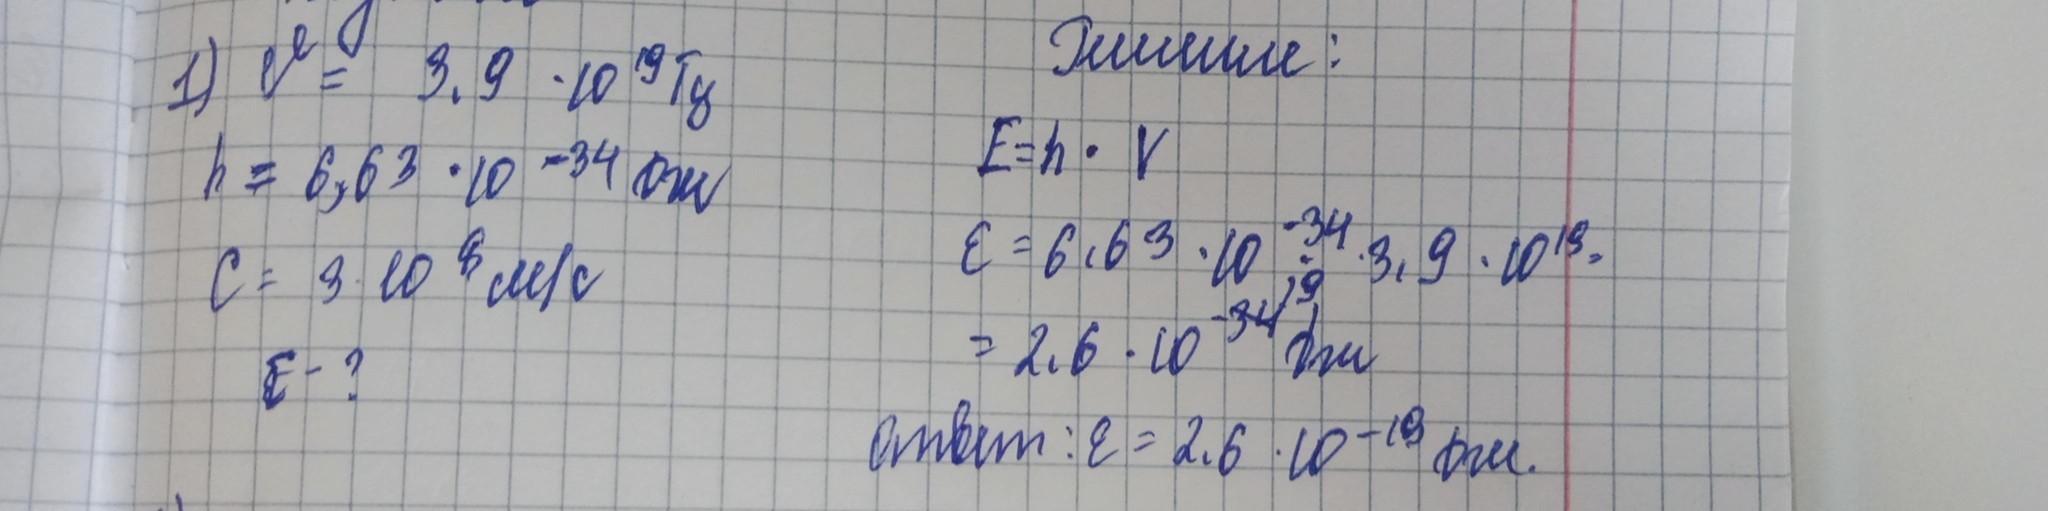 1) ν = 3,9 · 10^19 Гц
h = 6,63 · 10^-34 Дж
C = 3 · 10^8 м/с
E - ?
Решение:
E = h · V
ε = 6,63 · 10^-34 · 3,9 · 10^19 =
= 2,6 · 10^-19 Дж
Ответ: ε = 2,6 · 10^-19 Дж.